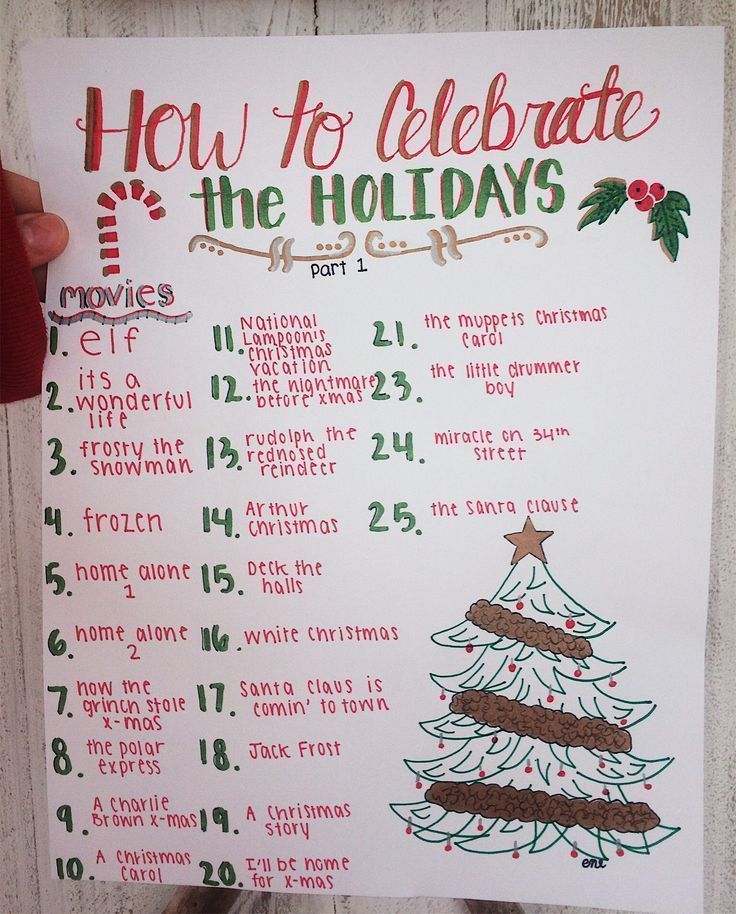 How to Celebrate
the HOLIDAYS
Part 1
movies
1. elf
2. its a
wonderful
life
3. frosty the
snowman
4. frozen
5. home alone
1
6. home alone
2
7. how the
grinch stole
x-mas
8. the polar
express
9. A Charlie
Brown x-mas
10. A Christmas
Carol
11. National
Lampoon's
christmas
vacation
12. the nightmare
before xmas
13. rudolph the
rednosed
reindeer
14. Arthur
Christmas
15. Deck the
halls
16. White Christmas
17. Santa Claus is
comin' to town
18. Jack Frost
19. A Christmas
Story
20. I'll be home
for x-mas
21. the muppets Christmas
Carol
23. the little drummer
boy
24. miracle on 34th
street
25. the santa clause